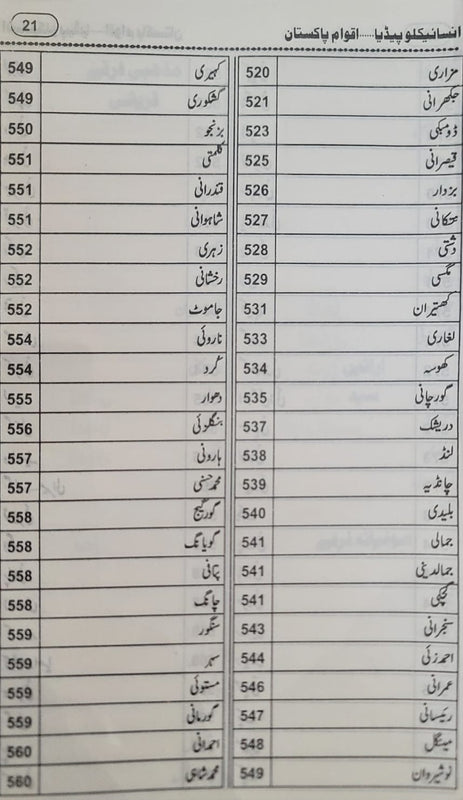 انسائیکلو پیڈیا.....اقوام پاکستان 21
مزاری 520
جکھرانی 521
ڈومبکی 523
قیصرانی 525
بزدار 526
527
دشتی 528
مگسی 529
کھتیران 531
لغاری 533
کھوسہ 534
گورچانی 535
دریشک 537
لنڈ 538
چانڈیہ 539
بلیدی 540
جمالی 541
جمالدینی 541
گچکی 541
سنجرانی 543
احمدزئی 544
عمرانی 546
رئیسانی 547
مینگل 548
نوشیروان 549
کہیری 549
کشکوری 549
بزنجو 550
کلمتی 551
قندرانی 551
شاہوانی 551
زہری 552
رخشانی 552
جاموٹ 552
ناروئی 554
کرد 554
دھوار 555
بنگلوئی 556
ہارونی 557
محمد حسنی 557
گورگیج 558
گوپانگ 558
پتافی 558
چانگ 558
سنگور 559
559
مستوئی 559
گورمانی 559
احمدانی 560
محمد شاہی 560